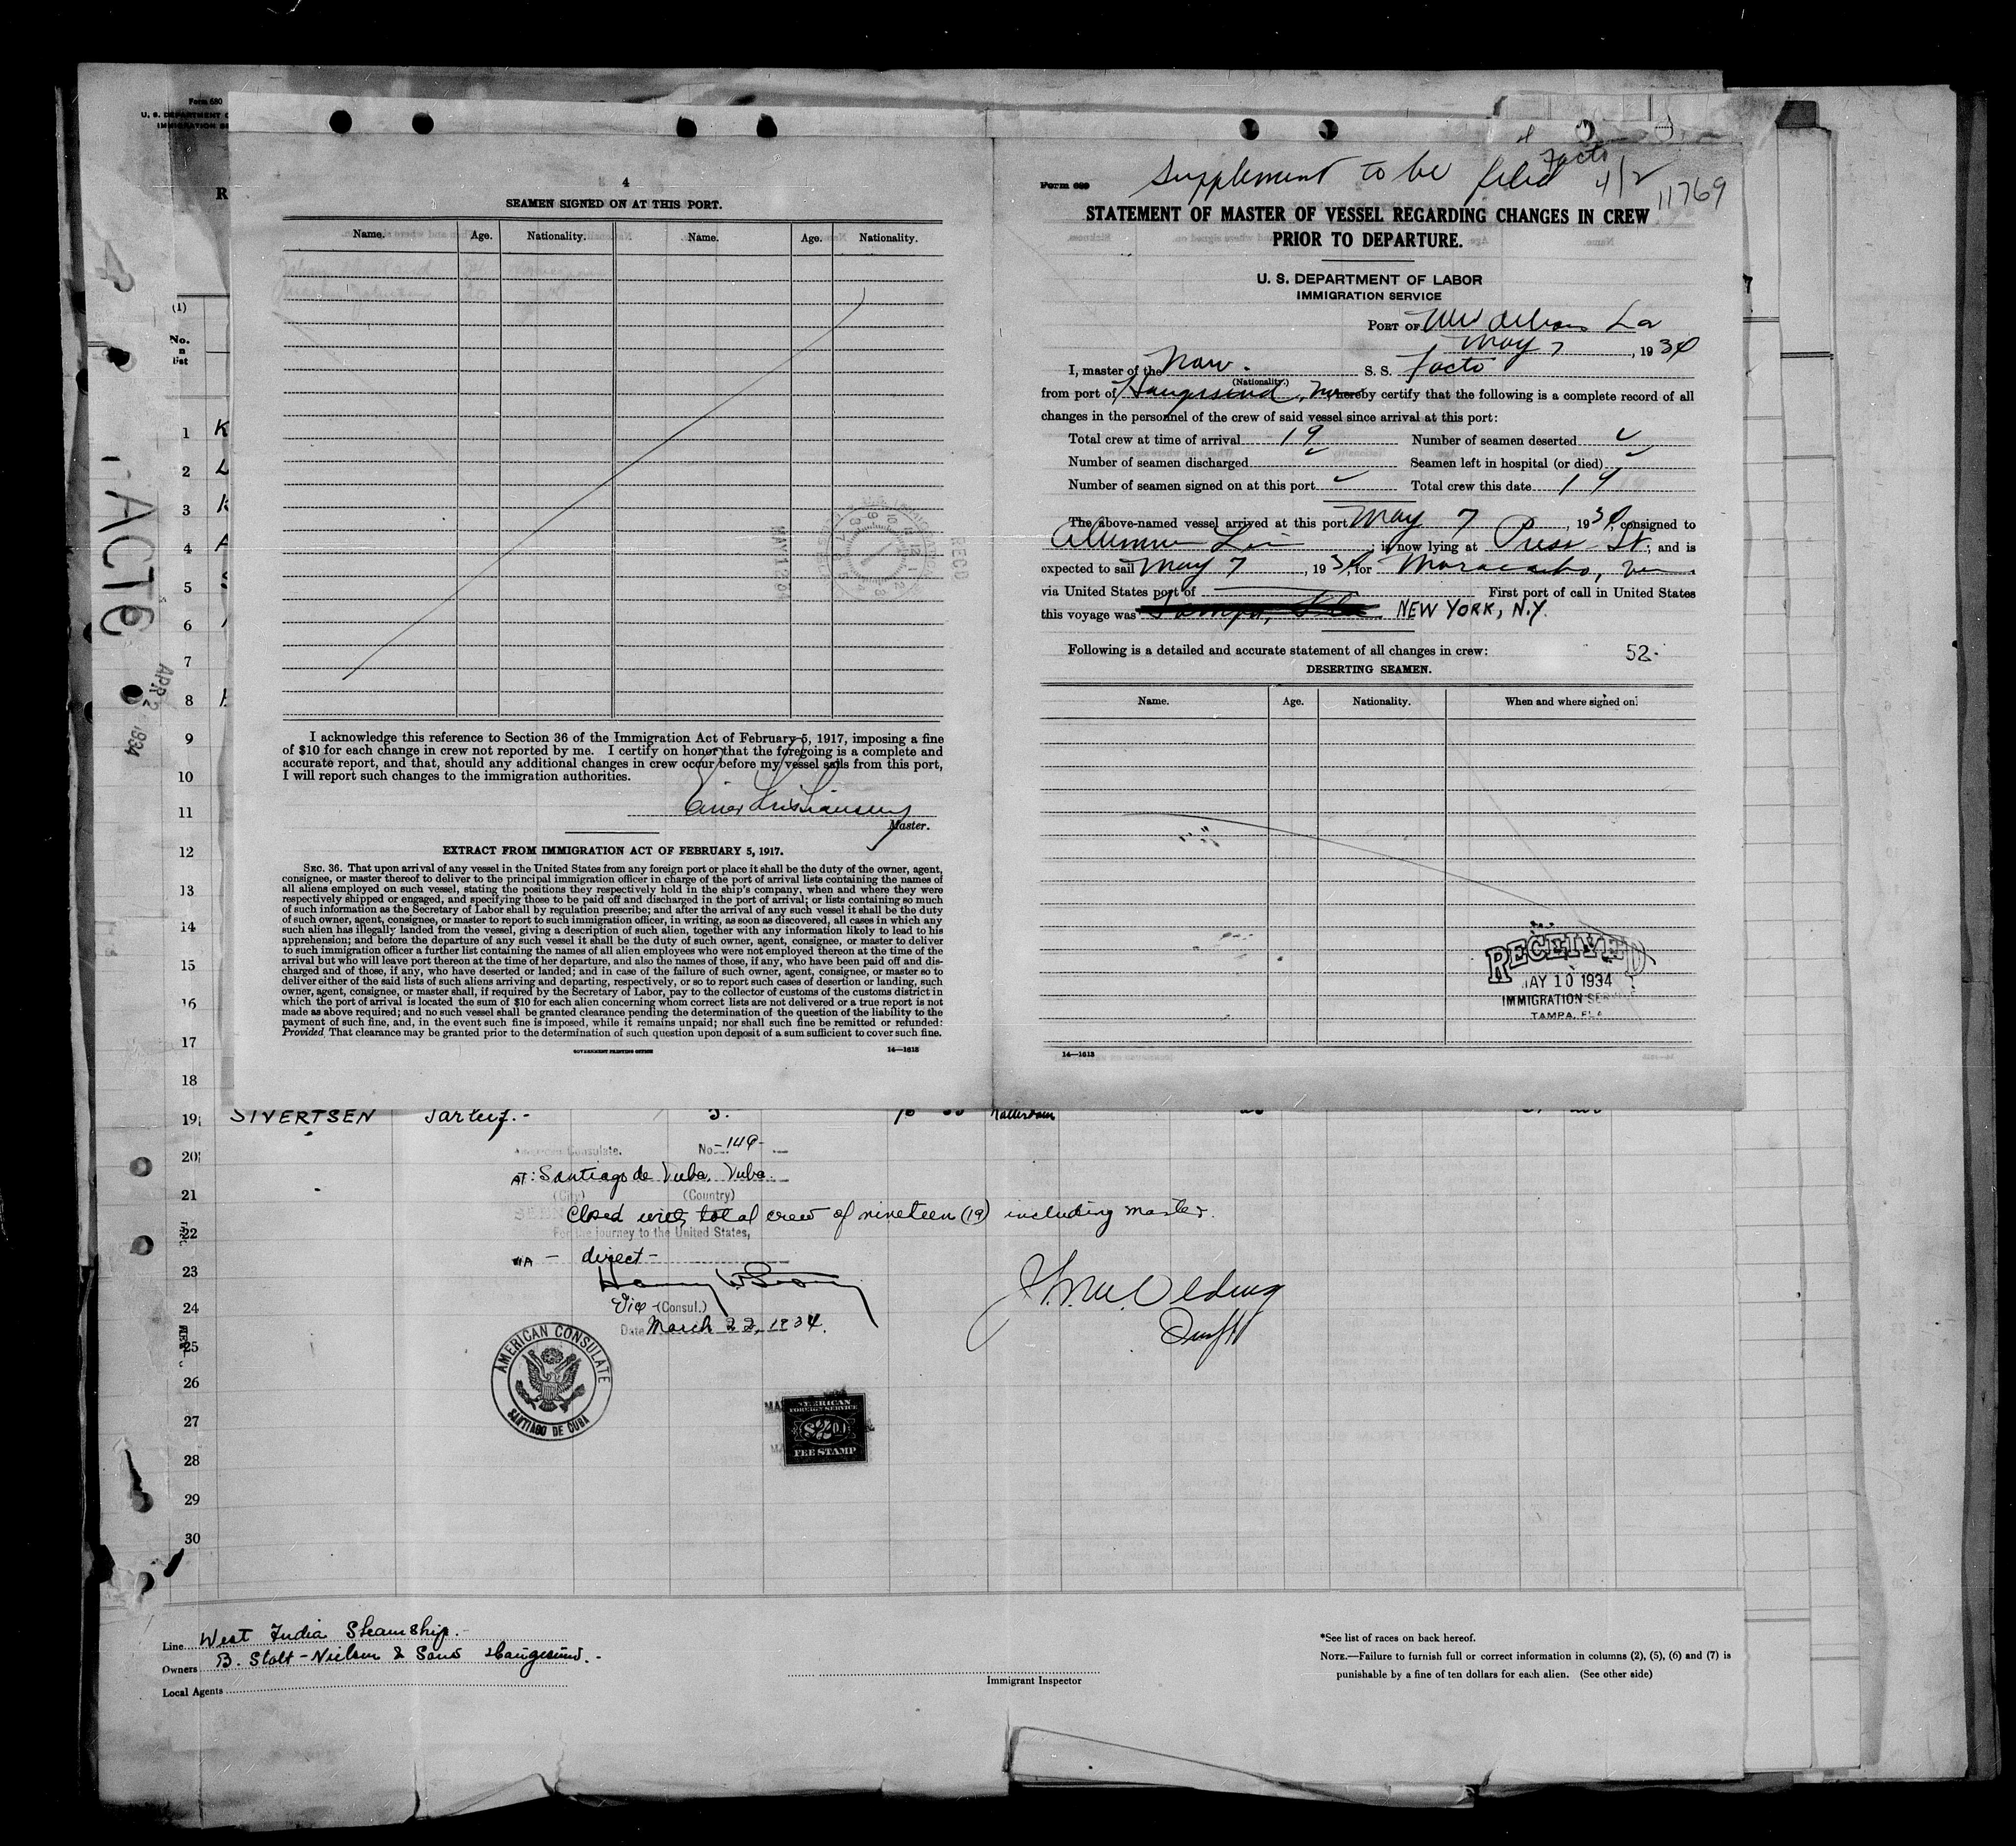 Form 680
U. S. DEPARTMENT
R
(1)
No.
list
1 K
2 L
3 K
4 A
5 S
6
7
8
9
10
11
12
13
14
15
16
17
18
FACTO
APR 2 1934
4
SEAMEN SIGNED ON AT THIS PORT.
Name. Age. Nationality. Name. Age. Nationality.
REC'D
I acknowledge this reference to Section 36 of the Immigration Act of February 5, 1917, imposing a fine
of $10 for each change in crew not reported by me. I certify on honor that the foregoing is a complete and
accurate report, and that, should any additional changes in crew occur before my vessel sails from this port,
I will report such changes to the immigration authorities.
Einar Kristiansen
Master.
EXTRACT FROM IMMIGRATION ACT OF FEBRUARY 5, 1917.
SEC. 36. That upon arrival of any vessel in the United States from any foreign port or place it shall be the duty of the owner, agent,
consignee, or master thereof to deliver to the principal immigration officer in charge of the port of arrival lists containing the names of
all aliens employed on such vessel, stating the positions they respectively hold in the ship's company, when and where they were
respectively shipped or engaged, and specifying those to be paid off and discharged in the port of arrival; or lists containing so much
of such information as the Secretary of Labor shall by regulation prescribe; and after the arrival of any such vessel it shall be the duty
of such owner, agent, consignee, or master to report to such immigration officer, in writing, as soon as discovered, all cases in which any
such alien has illegally landed from the vessel, giving a description of such alien, together with any information likely to lead to his
apprehension; and before the departure of any such vessel it shall be the duty of such owner, agent, consignee, or master to deliver
to such immigration officer a further list containing the names of all alien employees who were not employed thereon at the time of the
arrival but who will leave port thereon at the time of her departure, and also the names of those, if any, who have been paid off and dis-
charged and of those, if any, who have deserted or landed; and in case of the failure of such owner, agent, consignee, or master so to
deliver either of the said lists of such aliens arriving and departing, respectively, or so to report such cases of desertion or landing, such
owner, agent, consignee, or master shall, if required by the Secretary of Labor, pay to the collector of customs of the customs district in
which the port of arrival is located the sum of $10 for each alien concerning whom correct lists are not delivered or a true report is not
made as above required; and no such vessel shall be granted clearance pending the determination of the question of the liability to the
payment of such fine, and, in the event such fine is imposed, while it remains unpaid; nor shall such fine be remitted or refunded:
Provided, That clearance may be granted prior to the determination of such question upon deposit of a sum sufficient to cover such fine.
GOVERNMENT PRINTING OFFICE 14—1613
Supplement to be filed Facto 4/2 11769
Form 689
STATEMENT OF MASTER OF VESSEL REGARDING CHANGES IN CREW
PRIOR TO DEPARTURE.
U. S. DEPARTMENT OF LABOR
IMMIGRATION SERVICE
PORT OF New Orleans La
May 7, 1934
I, master of the Norw. S. S. Facto
(Nationality.)
from port of Haugesund, hereby certify that the following is a complete record of all
changes in the personnel of the crew of said vessel since arrival at this port:
Total crew at time of arrival 19 Number of seamen deserted
Number of seamen discharged Seamen left in hospital (or died)
Number of seamen signed on at this port Total crew this date 19
The above-named vessel arrived at this port May 7, 1934, consigned to
Aluminum Line; is now lying at Press St; and is
expected to sail May 7, 1934, for Maracaibo, Ven
via United States port of First port of call in United States
this voyage was Tampa, Fla NEW YORK, N.Y.
Following is a detailed and accurate statement of all changes in crew: 52.
DESERTING SEAMEN.
Name. Age. Nationality. When and where signed on.
RECEIVED
MAY 10 1934
IMMIGRATION SERVICE
TAMPA, FLA
14—1613
19 SIVERTSEN Tarleif.- 3. Rotterdam
20
21
22
23
24
25
26
27
28
29
30
American Consulate. No. -149-
AT: Santiago de Cuba, Cuba.
(City) (Country)
Closed with total crew of nineteen (19) including master.
For the journey to the United States,
VIA - direct -
Vice-(Consul.)
Date March 22, 1934.
AMERICAN CONSULATE
SANTIAGO DE CUBA
AMERICAN
FOREIGN SERVICE
$2.00
FEE STAMP
Line West India Steamship.-
Owners B. Stolt-Nielsen & Sons Haugesund.-
Local Agents
Immigrant Inspector
*See list of races on back hereof.
NOTE.—Failure to furnish full or correct information in columns (2), (5), (6) and (7) is
punishable by a fine of ten dollars for each alien. (See other side)